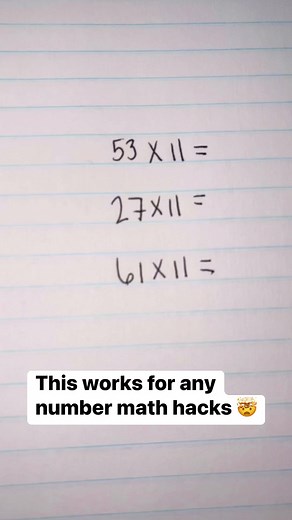 53 X 11 =
27 X 11 =
61 X 11 =
This works for any
number math hacks 🤯